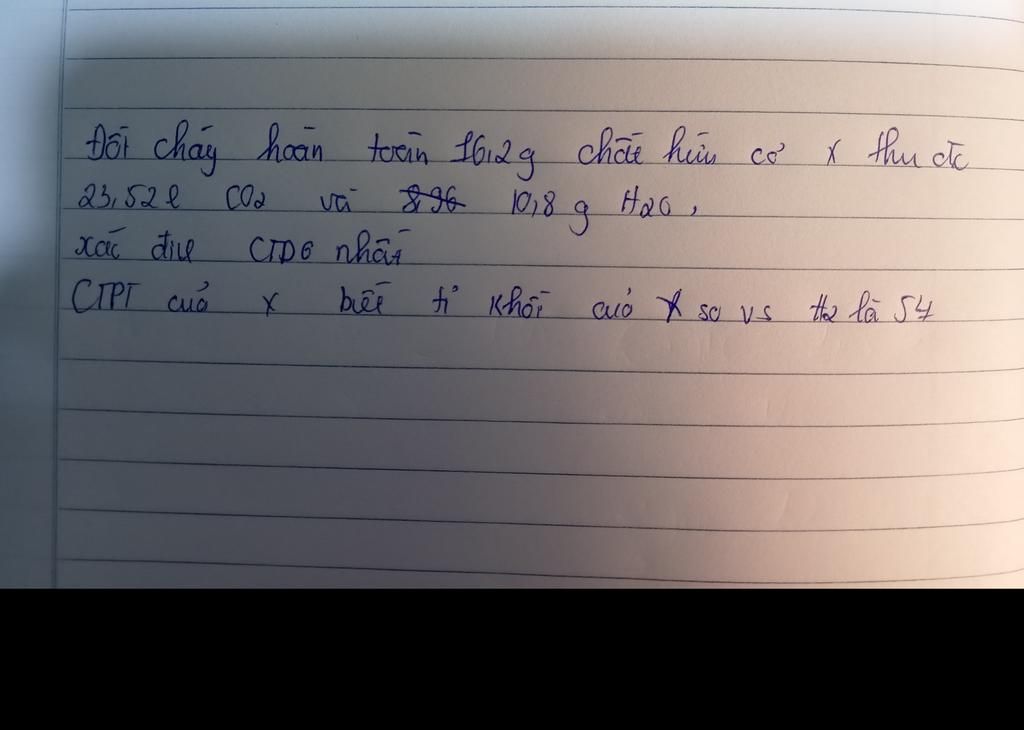 Đốt cháy hoàn toàn 16,2g chất hữu cơ X thu đc
23,52l CO2 và 8,96 10,8 g H2O,
xác địn CTĐG nhất
CTPT của X biết tỉ khối của X so vs H2 là 54